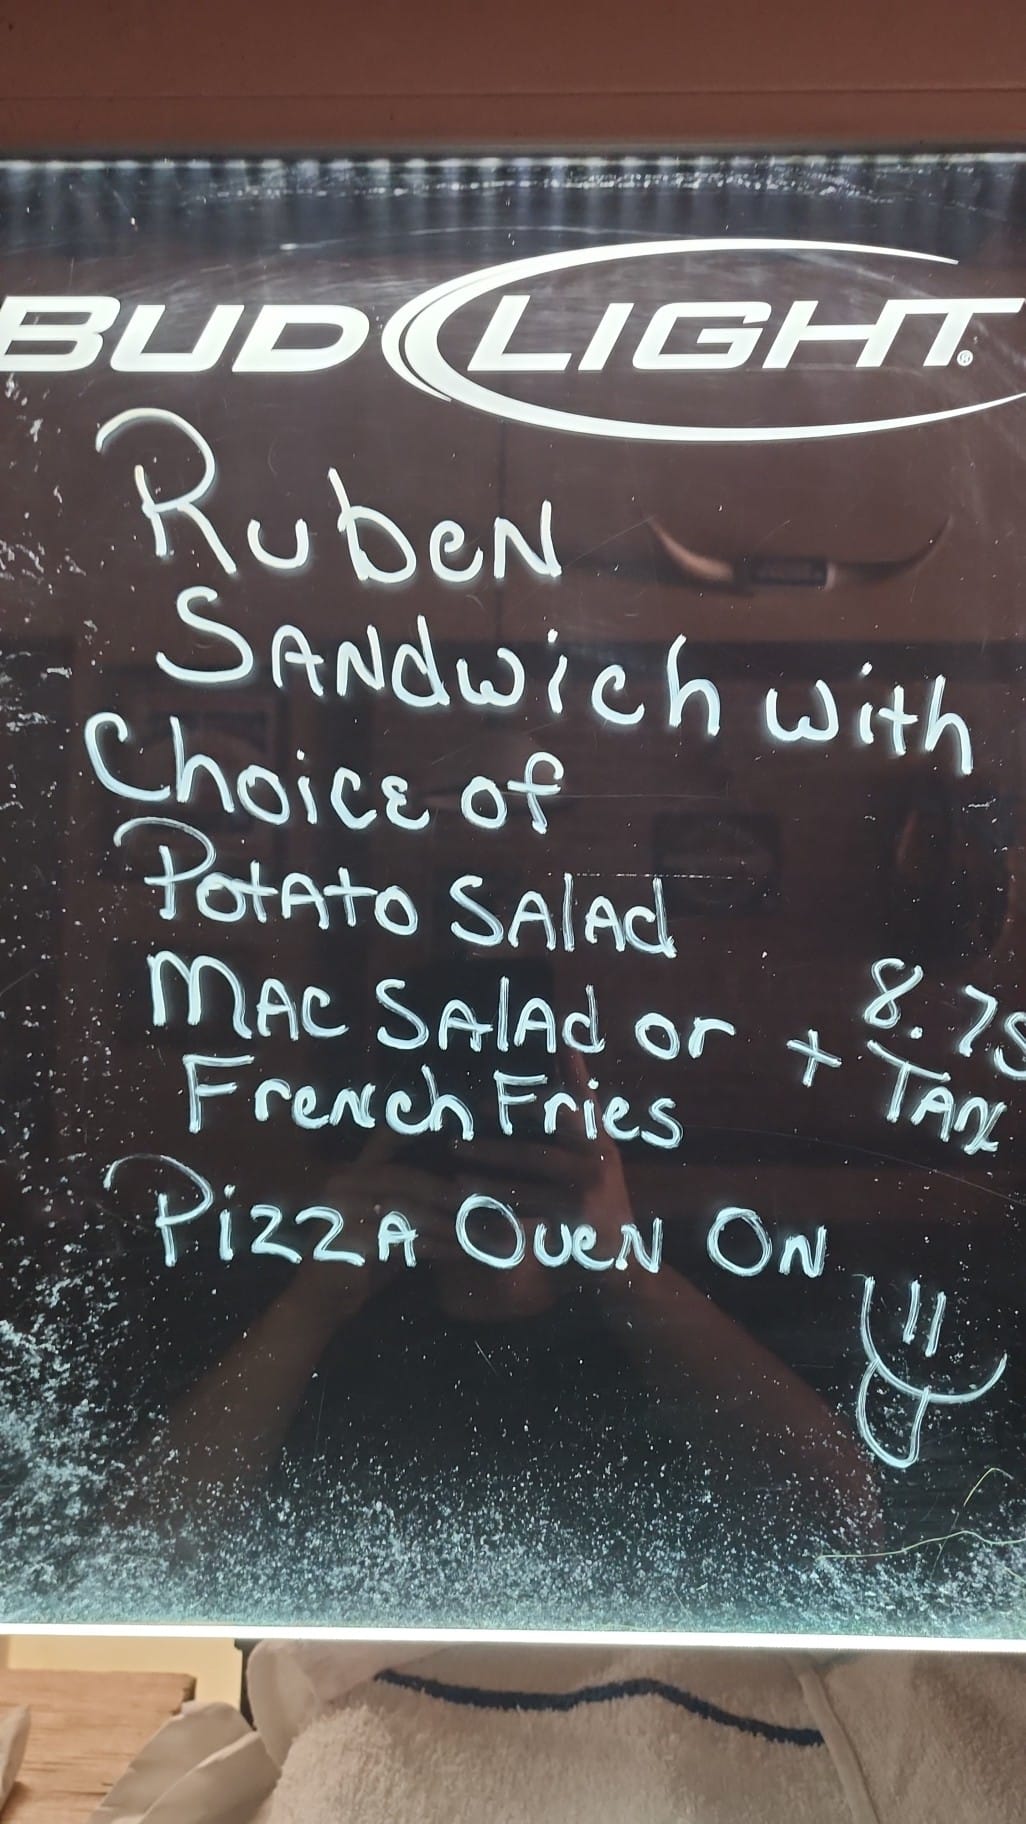 BUD LIGHT®
RubeN
SANdwich with
Choice of
PotAto SAlAd
MAC SAlAd or
8.75
French Fries
+ TAX
PizzA OveN ON